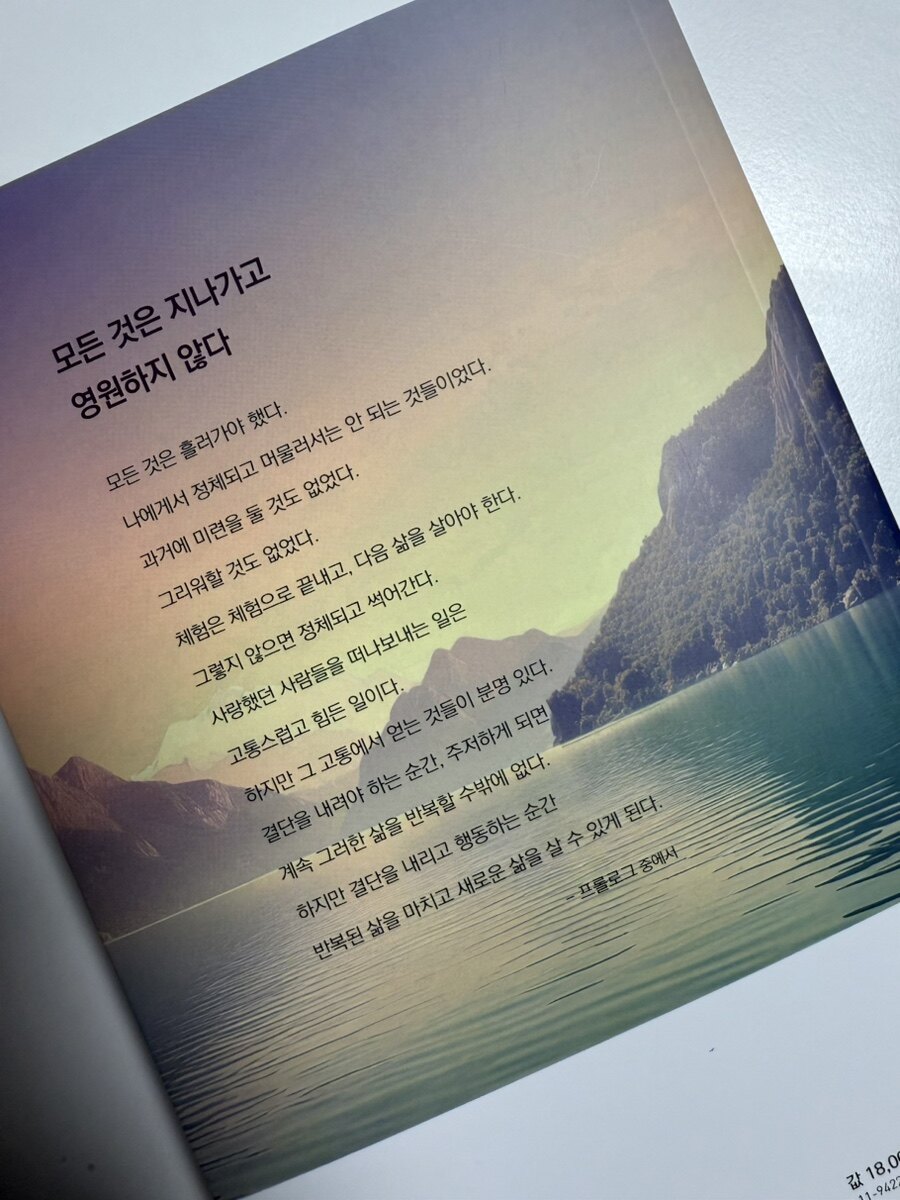 모든 것은 지나가고
영원하지 않다
모든 것은 흘러가야 했다.
나에게서 정체되고 머물러서는 안 되는 것들이었다.
과거에 미련을 둘 것도 없었다.
그리워할 것도 없었다.
체험은 체험으로 끝내고, 다음 삶을 살아야 한다.
그렇지 않으면 정체되고 썩어간다.
사랑했던 사람들을 떠나보내는 일은
고통스럽고 힘든 일이다.
하지만 그 고통에서 얻는 것들이 분명 있다.
결단을 내려야 하는 순간, 주저하게 되면
계속 그러한 삶을 반복할 수밖에 없다.
하지만 결단을 내리고 행동하는 순간
반복된 삶을 마치고 새로운 삶을 살 수 있게 된다.
- 프롤로그 중에서
값 18,00
11-9422